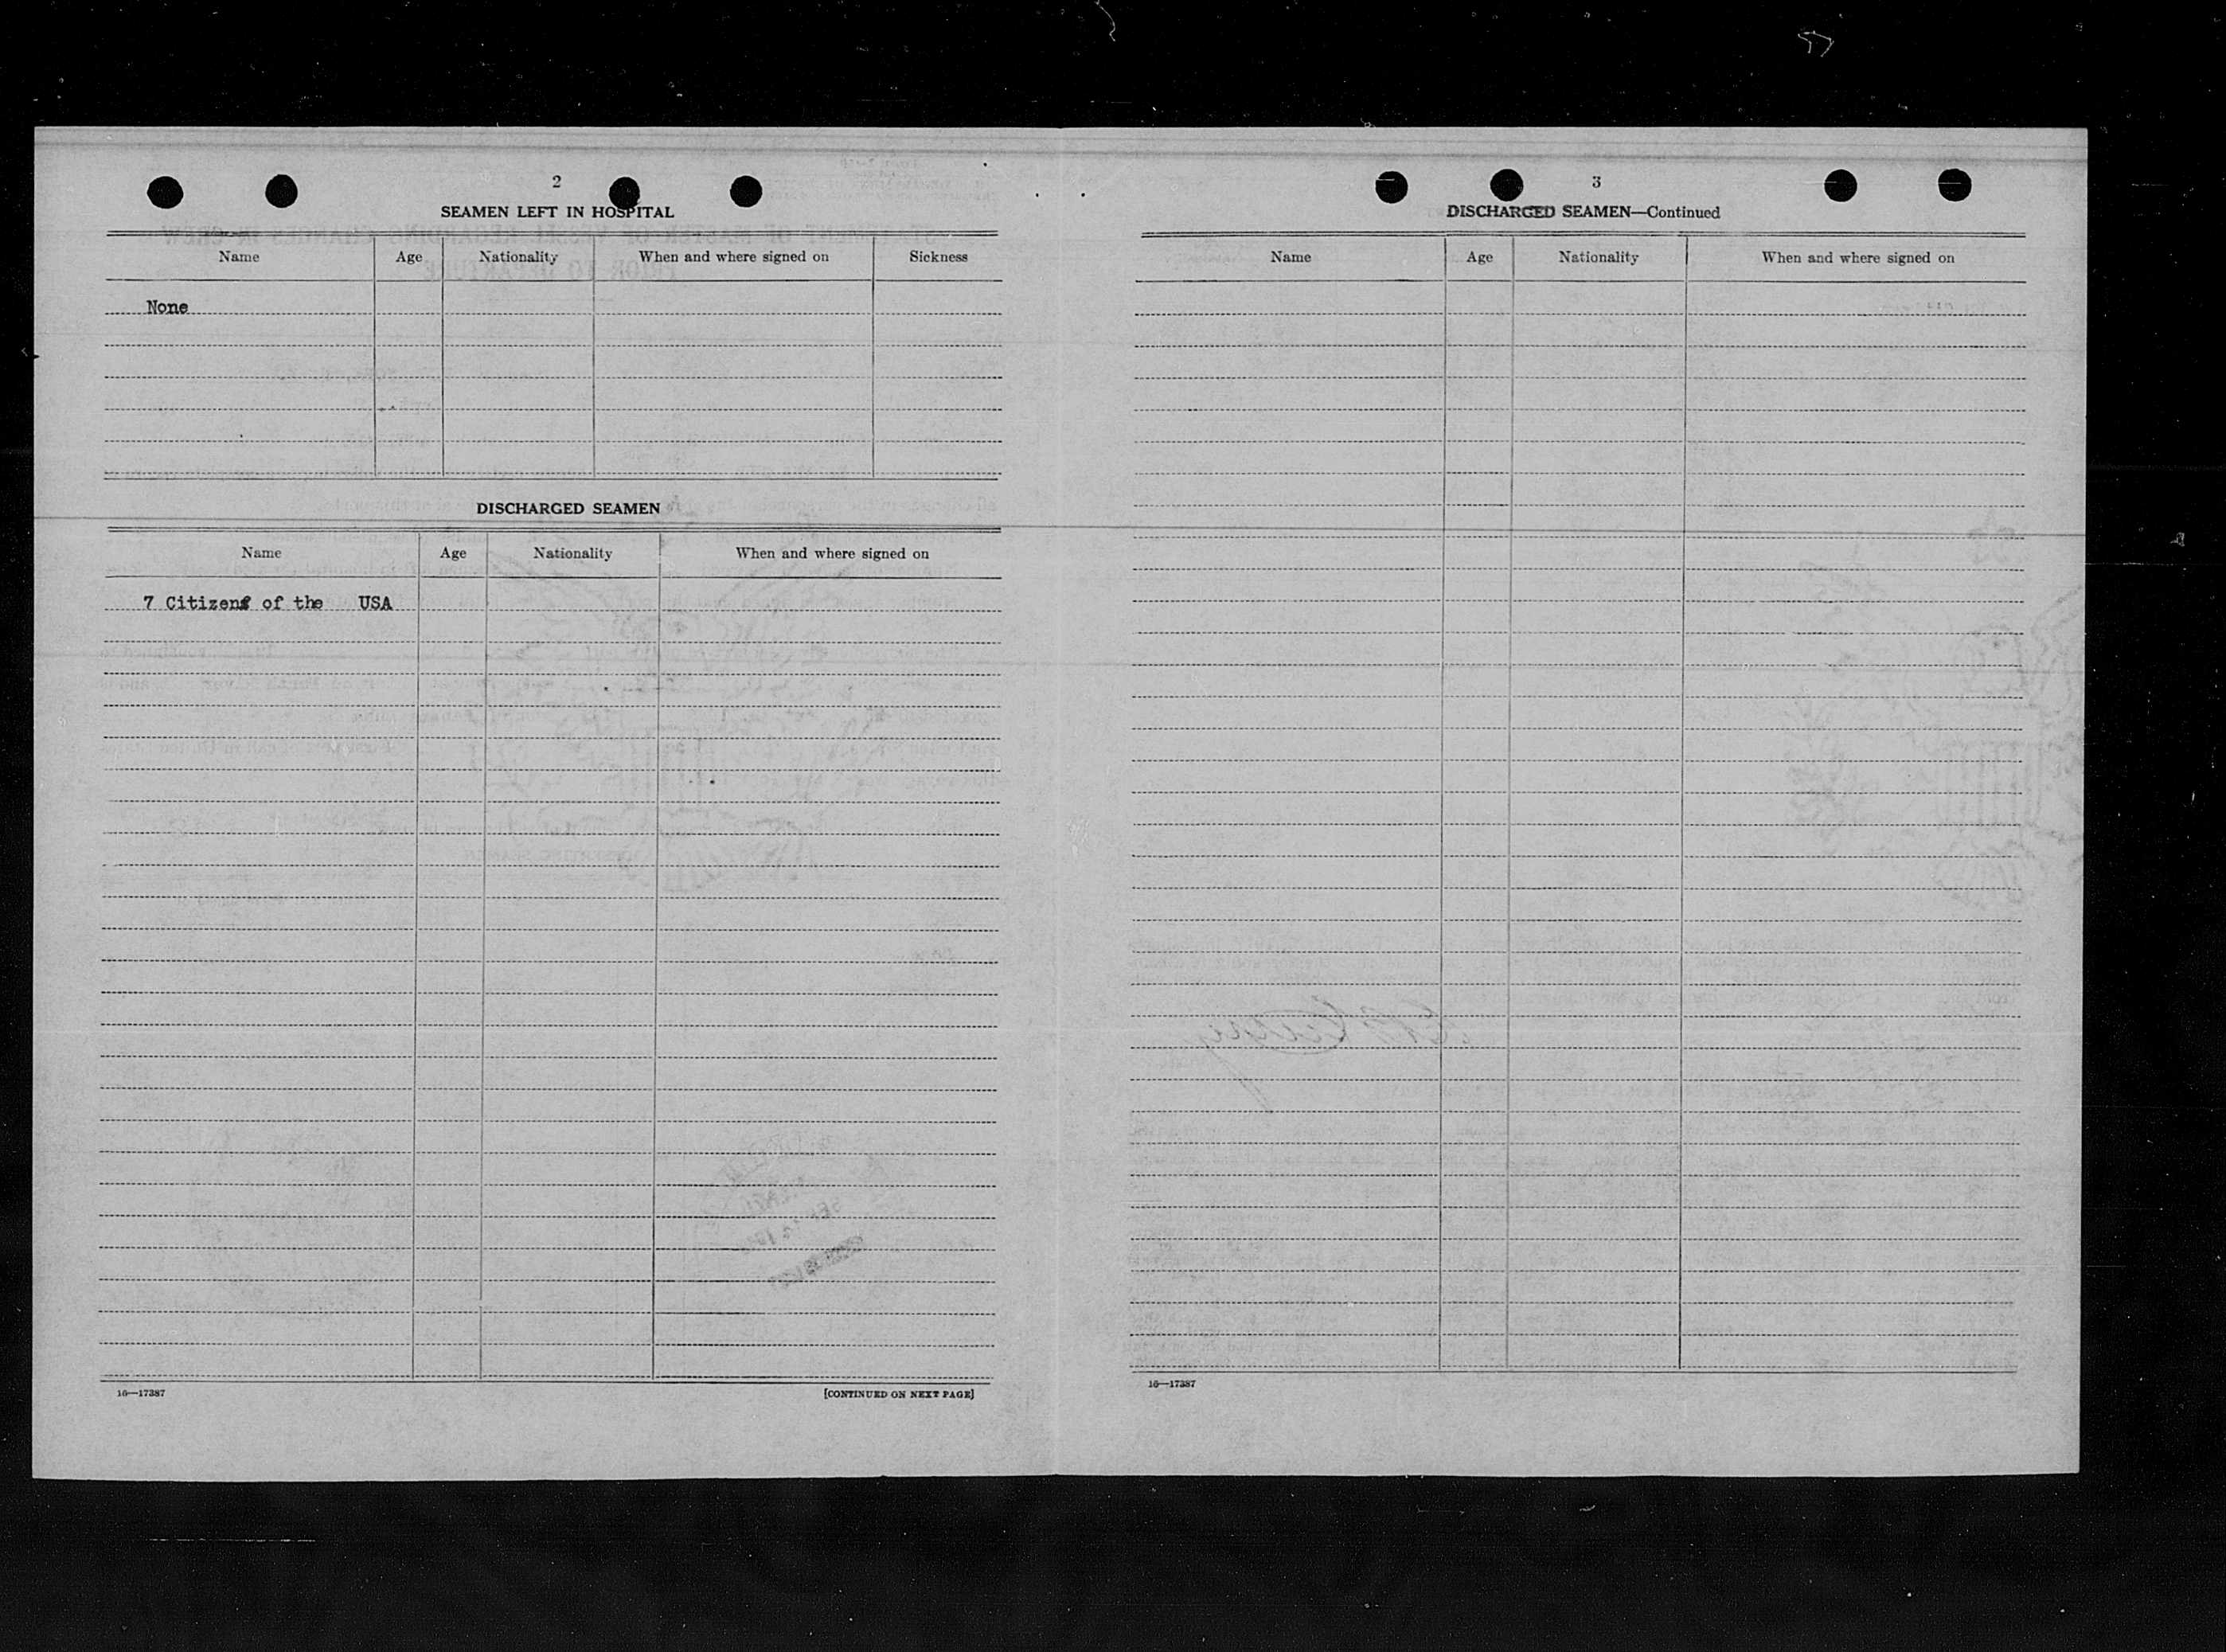 2
SEAMEN LEFT IN HOSPITAL
Name Age Nationality When and where signed on Sickness
None
DISCHARGED SEAMEN
Name Age Nationality When and where signed on
7 Citizens of the USA
16—17387 [CONTINUED ON NEXT PAGE]
3
DISCHARGED SEAMEN—Continued
Name Age Nationality When and where signed on
16—17387